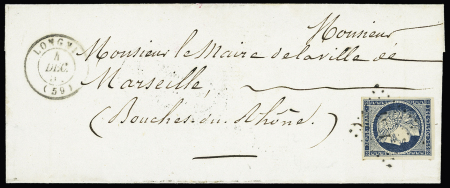 Monsieur
Monsieur le Maire de la ville de
Marseille,
(Bouches du Rhône.)
DEC.
(59)